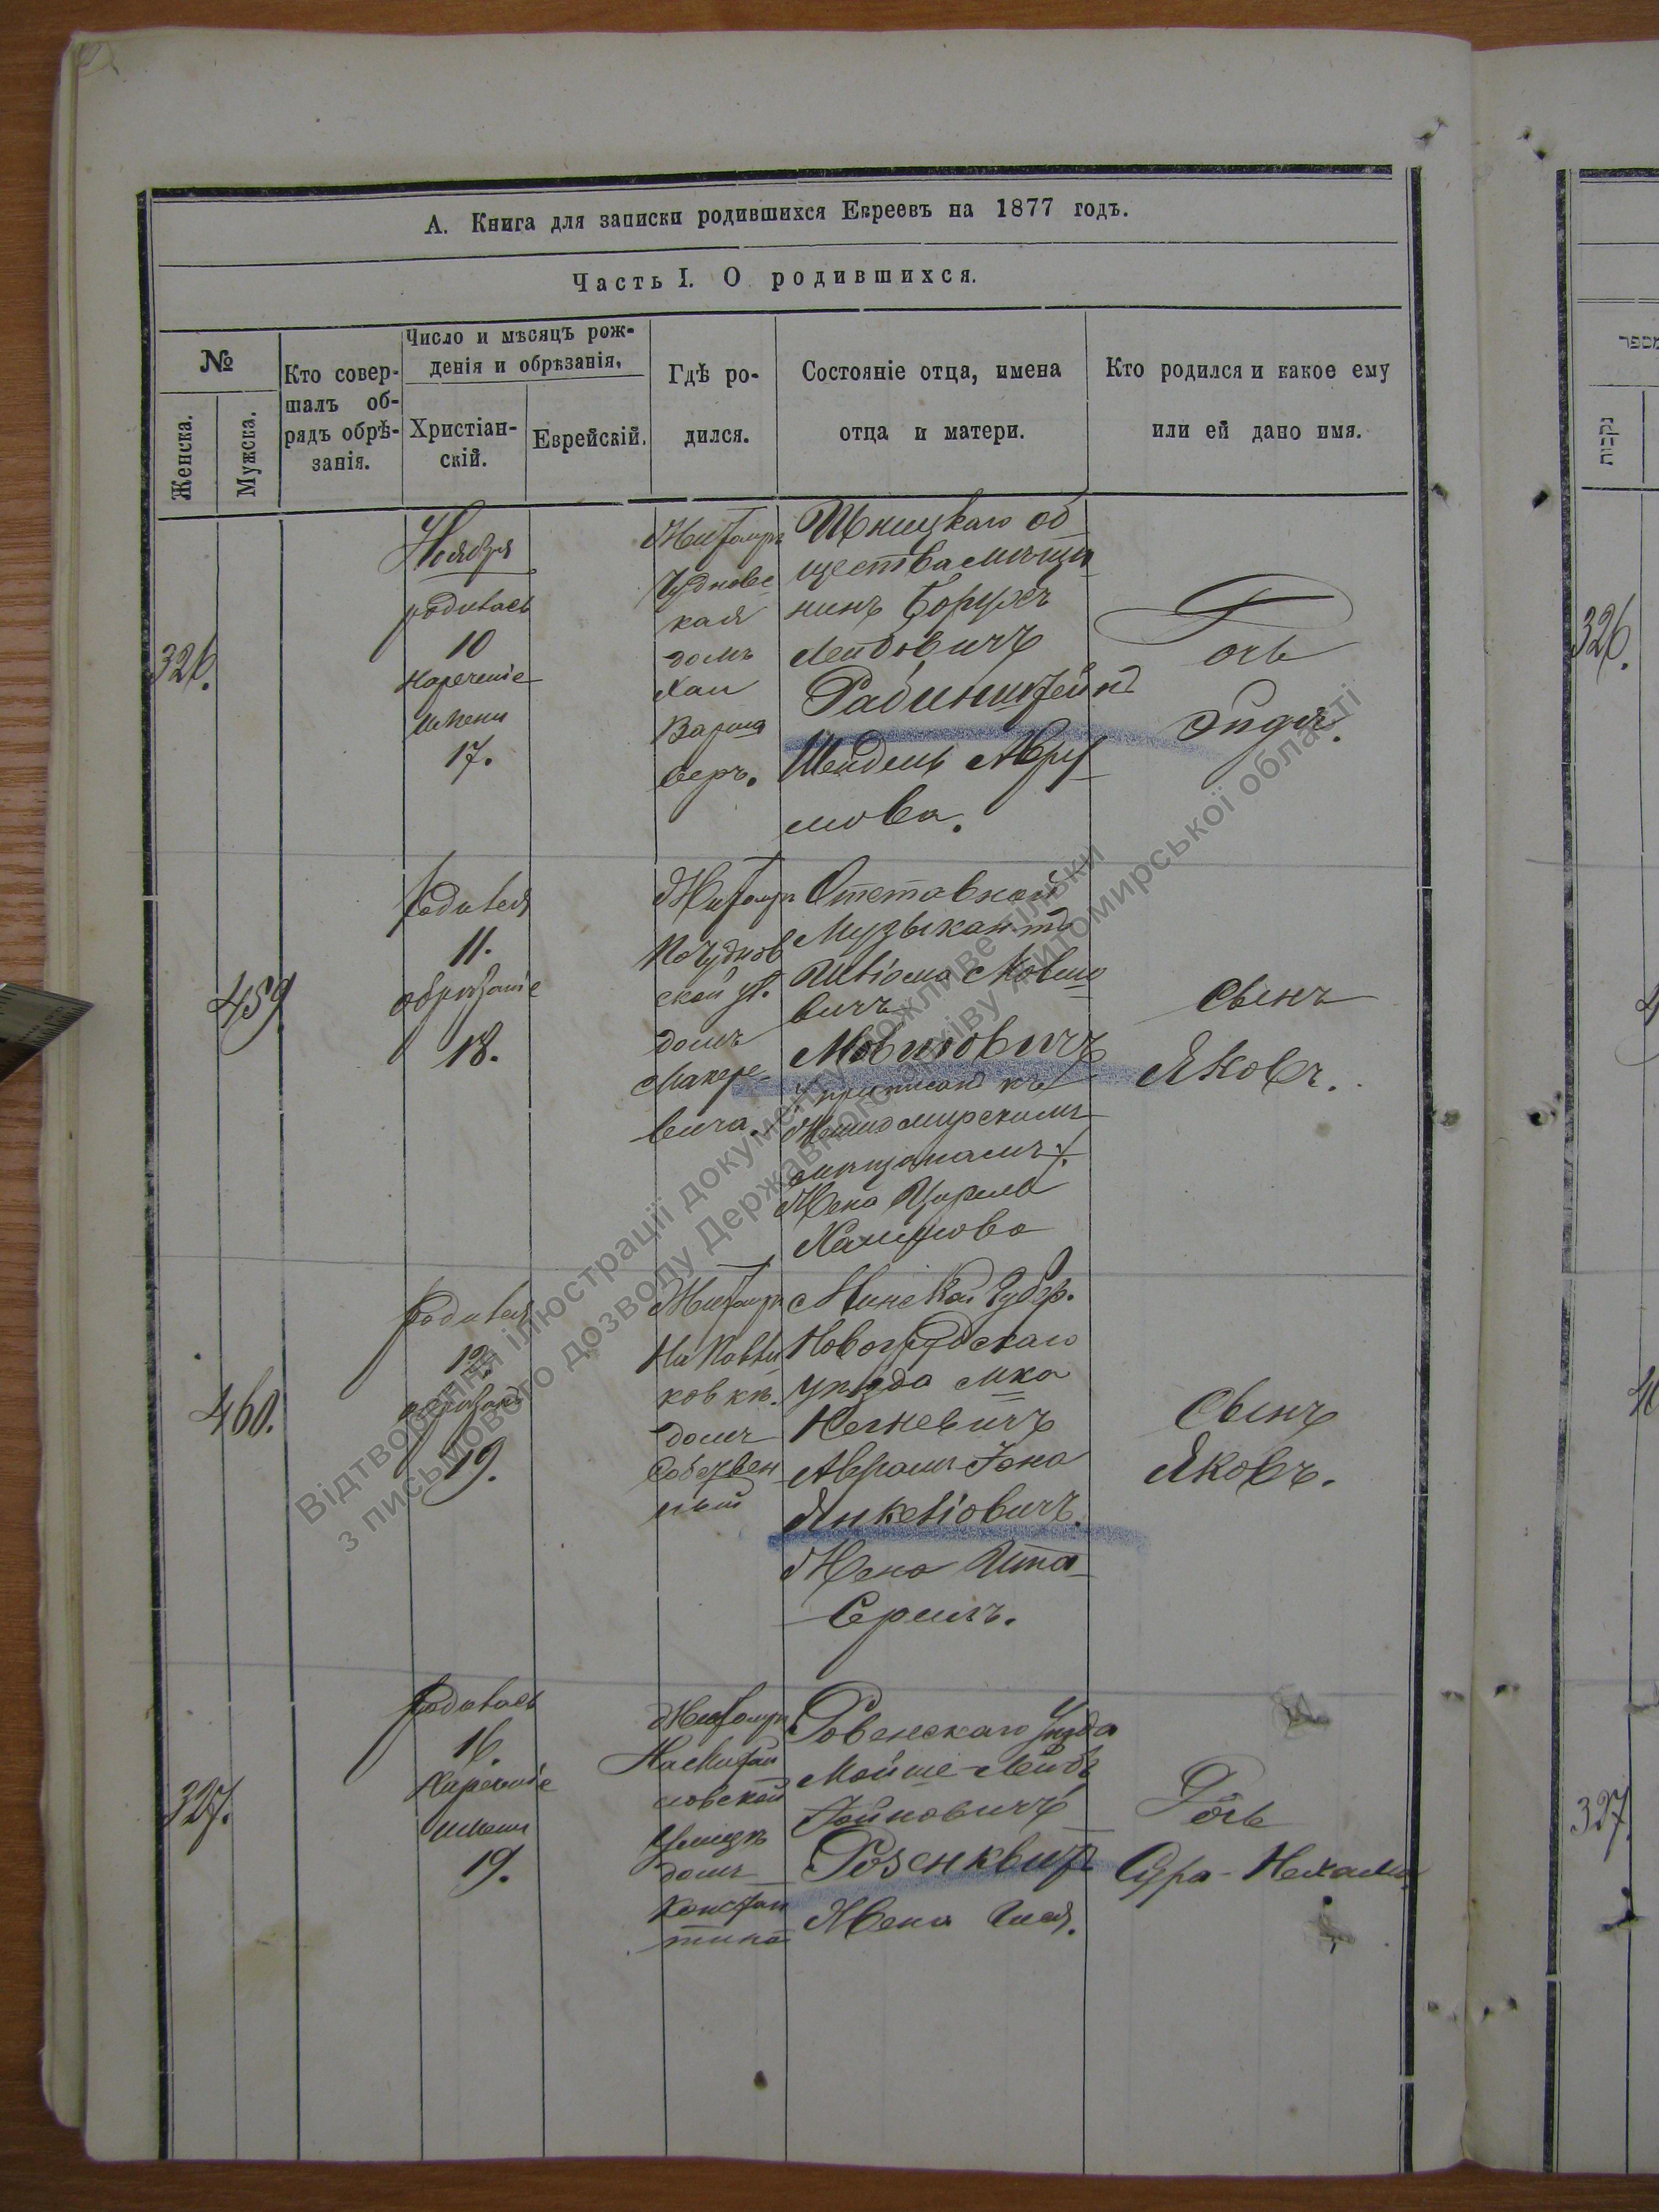 А. Книга для записки родившихся Евреевъ на 1877 годъ.
Часть I. О родившихся.
№
Женска.
Мужска.
Кто совер-
шалъ об-
рядъ обрѣ-
занія.
Число и мѣсяцъ рож-
денія и обрѣзанія.
Христіан-
скій.
Еврейскій.
Гдѣ ро-
дился.
Состояніе отца, имена
отца и матери.
Кто родился и какое ему
или ей дано имя.
326.
Ноября
родилась
10
нареченіе
имени
17.
Житомиръ
Чудновс
кая
домъ
Хаи
Варша
веръ.
общества мѣща
нинъ Борухъ
Лейбовичъ
Рабинштейнъ
Шейдель Абру
мова.
Дочь
459
Родился
11.
обрѣзаніе
18.
Житомиръ
по Чуднов
ской ул.
домъ
Макаре
вича.
Отставной
Музыкантъ
Шлiома Мовшо
вичъ
Мовшовичъ
приписанъ къ
Житомирскимъ
мѣщанамъ
Жена Цирля
Хаимова
Сынъ
Яковъ.
460.
Родился
12.
обрѣзанъ
19.
Житомиръ
домъ
Собствен
ный
Минской Губер.
Новогрудскаго
уѣзда м-ка
Негневичъ
Абрамъ Іона
Янкеліовичъ.
Жена Ита
Сынъ
Яковъ.
327.
Родилась
16.
Нареченіе
имени
19.
Житомиръ
На Михай
ловской
улицѣ
домъ
Констан
тина
Ровенскаго уѣзда
Мойше-Лейбъ
Жена
Дочь
Сура-Нехама
מספר
נקבות
326.
327
Відтворення ілюстрації документу можливе тільки
з письмового дозволу Державного архіву Житомирської області